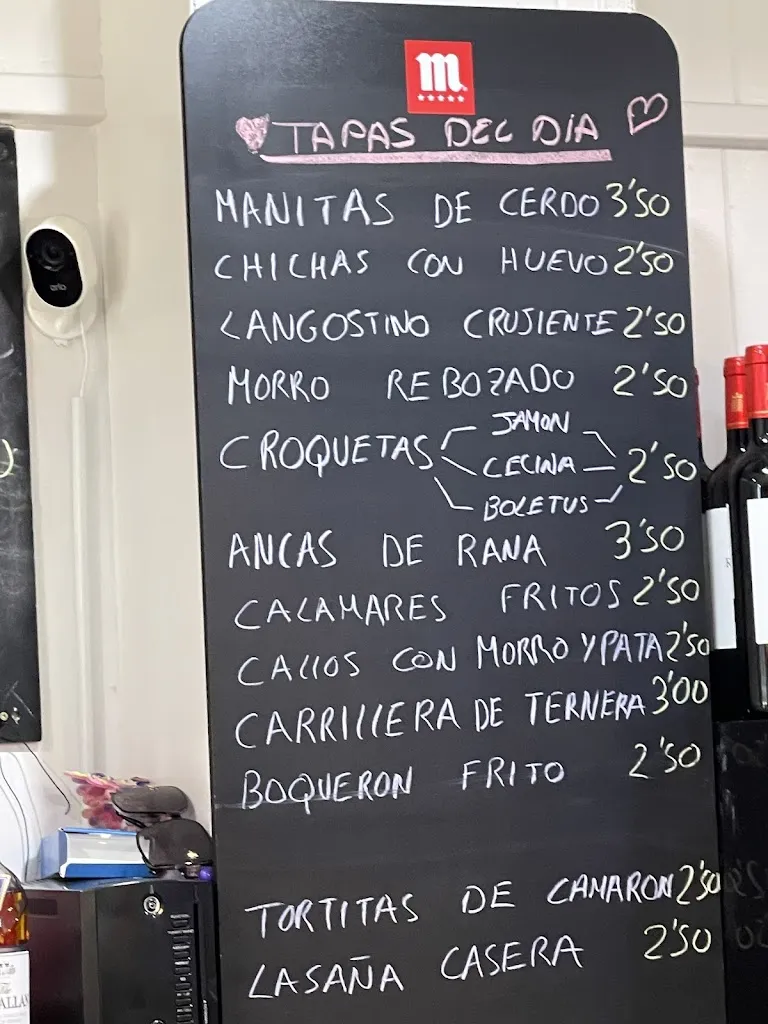 m
TAPAS DEL DIA
MANITAS DE CERDO 3'50
CHICHAS CON HUEVO 2'50
LANGOSTINO CRUJIENTE 2'50
MORRO REBOZADO 2'50
CROQUETAS JAMON CECINA BOLETUS 2'50
ANCAS DE RANA 3'50
CALAMARES FRITOS 2'50
CALLOS CON MORRO Y PATA 2'50
CARRILLERA DE TERNERA 3'00
BOQUERON FRITO 2'50
TORTITAS DE CAMARON 2'50
LASAÑA CASERA 2'50
arlo